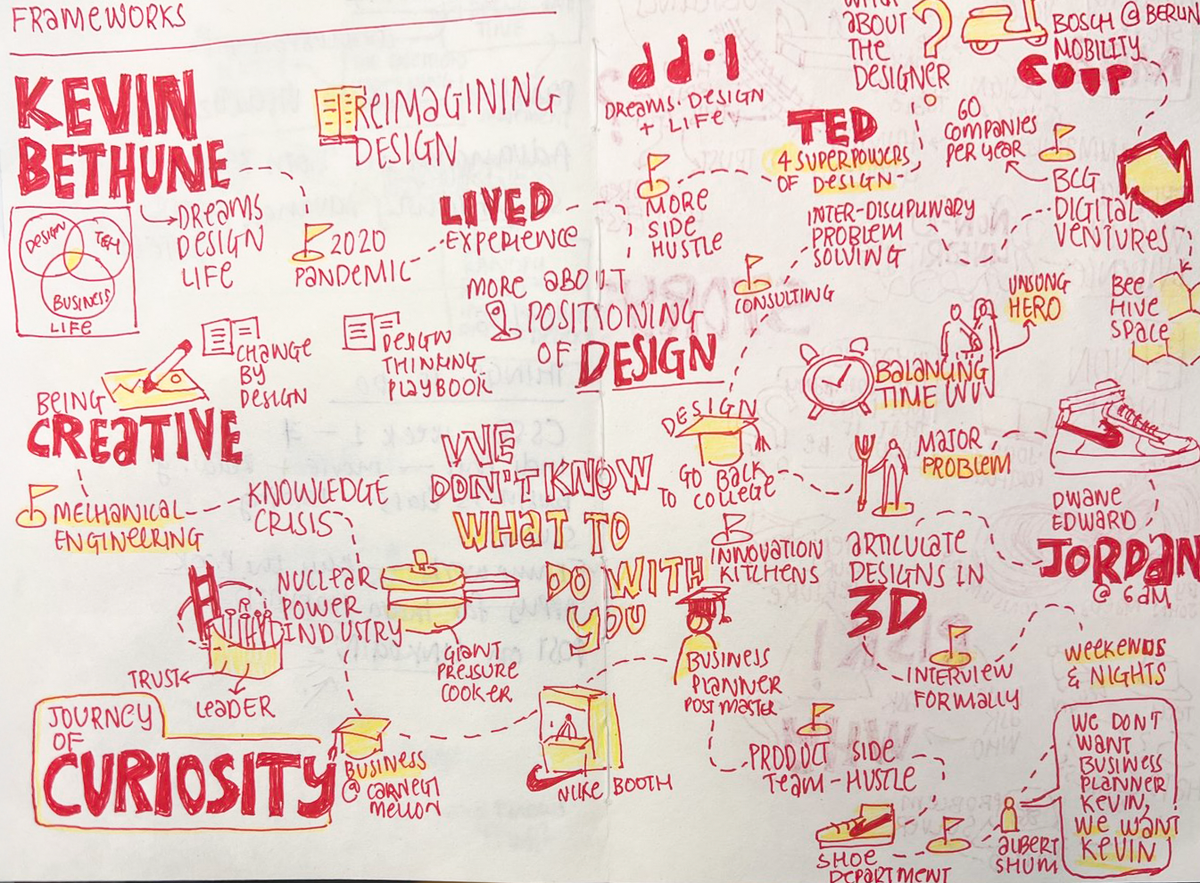 FRAMEWORKS
KEVIN
BETHUNE
DREAMS
DESIGN
LIFE
DESIGN
TECH
BUSINESS
LIFE
REIMAGINING
DESIGN
2020
PANDEMIC
LIVED
EXPERIENCE
CHANGE
BY
DESIGN
DESIGN
THINKING
PLAYBOOK
BEING
CREATIVE
MECHANICAL
ENGINEERING
KNOWLEDGE
CRISIS
NUCLEAR
POWER
INDUSTRY
TRUST
LEADER
GIANT
PRESSURE
COOKER
JOURNEY
OF
CURIOSITY
BUSINESS
@ CARNEGI
MELLON
NIKE BOOTH
MORE ABOUT
POSITIONING
OF DESIGN
WE
DON'T KNOW
WHAT TO
DO WITH
YOU
dd.l
DREAMS.DESIGN
+ LIFE
MORE
SIDE
HUSTLE
TED
4 SUPERPOWERS
OF DESIGN
INTER-DISCIPLINARY
PROBLEM
SOLVING
CONSULTING
ABOUT
THE
DESIGNER
?
BOSCH @ BERLIN
MOBILITY
COUP
60
COMPANIES
PER YEAR
BCG
DIGITAL
VENTURES
BEE
HIVE
SPACE
UNSUNG
HERO
BALANCING
TIME
DESIGN
GO BACK
TO COLLEGE
MAJOR
PROBLEM
INNOVATION
KITCHENS
ARTICULATE
DESIGNS IN
3D
DWANE
EDWARD
JORDAN
@ 6AM
INTERVIEW
FORMALLY
WEEKENDS
& NIGHTS
BUSINESS
PLANNER
POST MASTER
PRODUCT SIDE
TEAM-HUSTLE
SHOE
DEPARTMENT
ALBERT
SHUM
WE DON'T
WANT
BUSINESS
PLANNER
KEVIN,
WE WANT
KEVIN